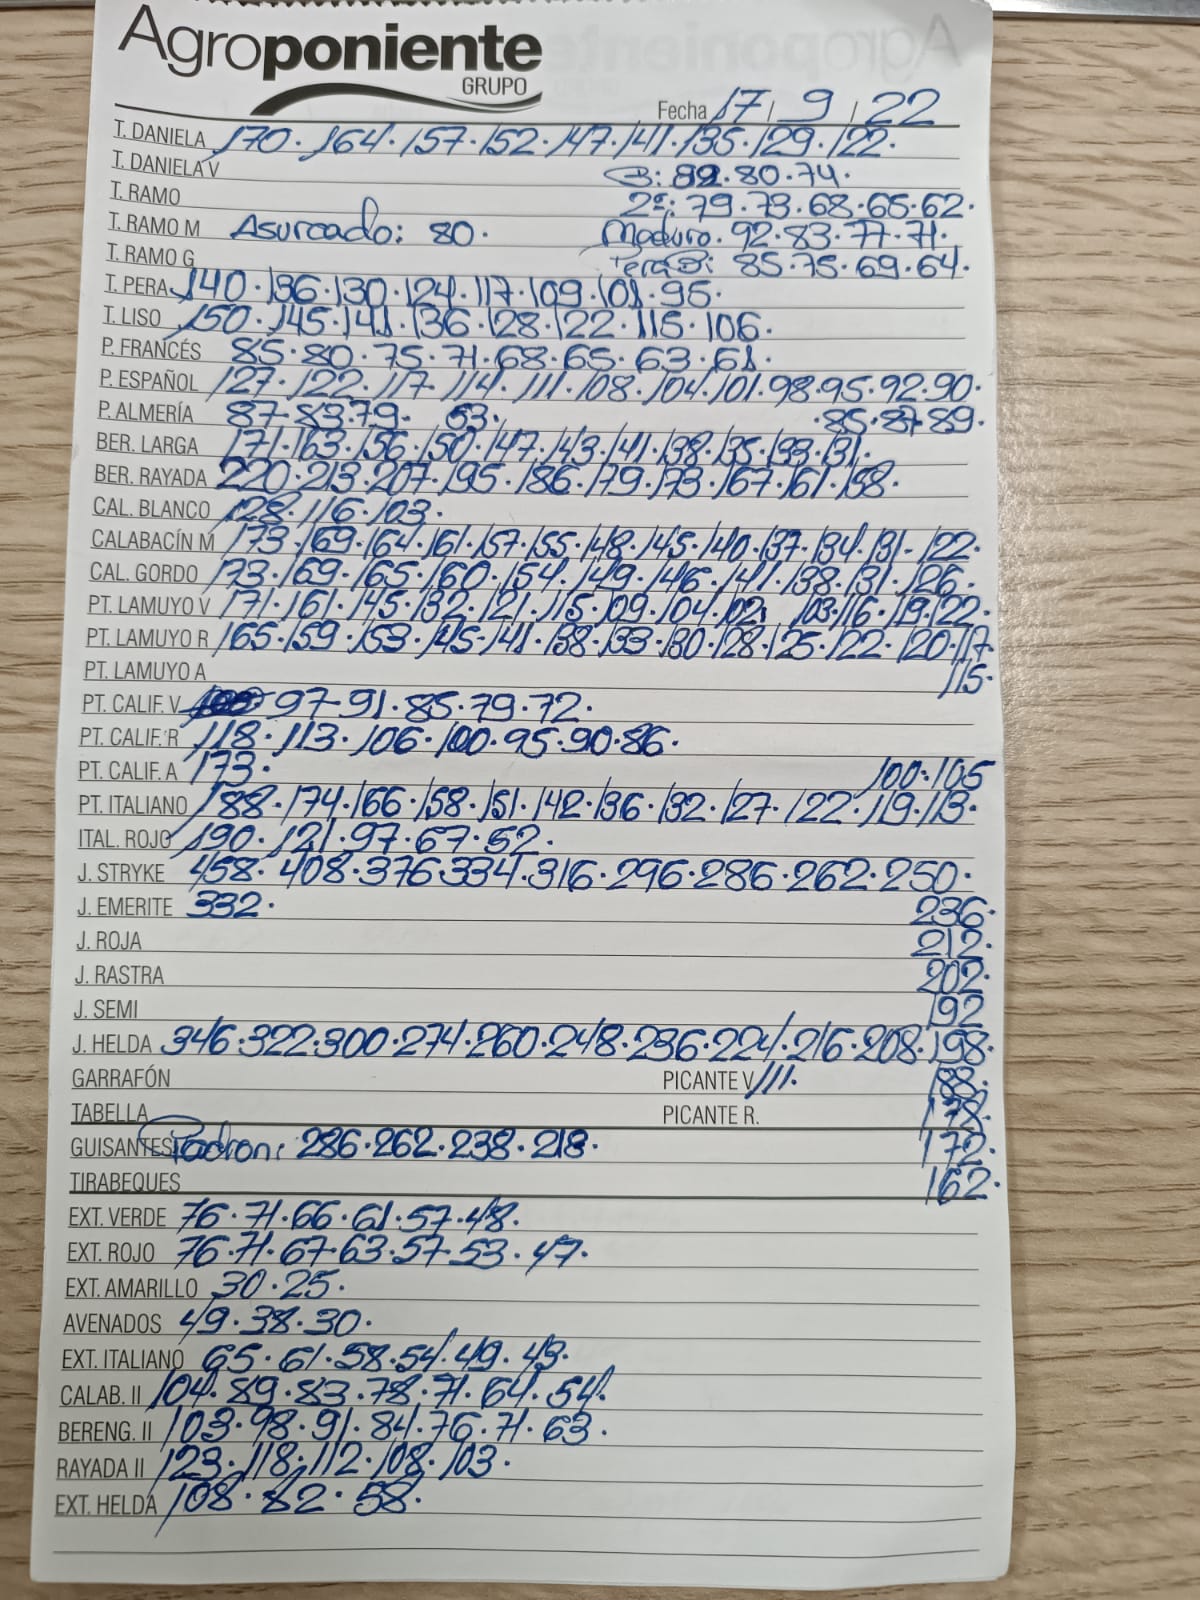 Agroponiente
GRUPO
Fecha 17 / 9 / 22
T. DANIELA 170 · 164 · 157 · 152 · 147 · 141 · 135 · 129 · 122 ·
T. DANIELA V B: 82 · 80 · 74 ·
T. RAMO 2ª: 79 · 73 · 68 · 65 · 62 ·
T. RAMO M Asurcado: 80 · Maduro · 92 · 83 · 77 · 71 ·
T. RAMO G Pera B: 85 · 75 · 69 · 64 ·
T. PERA 140 · 136 · 130 · 124 · 117 · 109 · 101 · 95 ·
T. LISO 150 · 145 · 141 · 136 · 128 · 122 · 115 · 106 ·
P. FRANCÉS 85 · 80 · 75 · 71 · 68 · 65 · 63 · 61 ·
P. ESPAÑOL 127 · 122 · 117 · 114 · 111 · 108 · 104 · 101 · 98 · 95 · 92 · 90 ·
P. ALMERÍA 87 · 83 · 79 · 53 · · 85 · 87 · 89 ·
BER. LARGA 171 · 163 · 156 · 150 · 147 · 143 · 141 · 138 · 135 · 133 · 131 ·
BER. RAYADA 220 · 213 · 207 · 195 · 186 · 179 · 173 · 167 · 161 · 158 ·
CAL. BLANCO 128 · 116 · 103 ·
CALABACÍN M 173 · 169 · 164 · 161 · 157 · 155 · 148 · 145 · 140 · 137 · 134 · 131 · 122 ·
CAL. GORDO 173 · 169 · 165 · 160 · 154 · 149 · 146 · 141 · 138 · 131 · 126 ·
PT. LAMUYO V 171 · 161 · 145 · 132 · 121 · 115 · 109 · 104 · 102 103 · 116 · 119 · 122 ·
PT. LAMUYO R 165 · 159 · 153 · 145 · 141 · 138 · 133 · 130 · 128 · 125 · 122 · 120 · 117
PT. LAMUYO A 115 ·
PT. CALIF. V 97 · 91 · 85 · 79 · 72 ·
PT. CALIF. R 118 · 113 · 106 · 100 · 95 · 90 · 86 ·
PT. CALIF. A 173 · 100 · 105
PT. ITALIANO 188 · 174 · 166 · 158 · 151 · 142 · 136 · 132 · 127 · 122 · 119 · 113 ·
ITAL. ROJO 190 · 121 · 97 · 67 · 52 ·
J. STRYKE 458 · 408 · 376 · 334 · 316 · 296 · 286 · 262 · 250 ·
J. EMERITE 332 · 236 ·
J. ROJA 212 ·
J. RASTRA 202 ·
J. SEMI 192
J. HELDA 346 · 322 · 300 · 274 · 260 · 248 · 236 · 224 · 216 · 208 · 198 ·
GARRAFÓN PICANTE V 111 · 188 ·
TABELLA PICANTE R. 178 ·
GUISANTES Padron: 286 · 262 · 238 · 218 · 172 ·
TIRABEQUES 162 ·
EXT. VERDE 76 · 71 · 66 · 61 · 57 · 48 ·
EXT. ROJO 76 · 71 · 67 · 63 · 57 · 53 · 47 ·
EXT. AMARILLO 30 · 25 ·
AVENADOS 49 · 38 · 30 ·
EXT. ITALIANO 65 · 61 · 58 · 54 · 49 · 43 ·
CALAB. II 104 · 89 · 83 · 78 · 71 · 64 · 54 ·
BERENG. II 103 · 98 · 91 · 84 · 76 · 71 · 63 ·
RAYADA II 123 · 118 · 112 · 108 · 103 ·
EXT. HELDA 108 · 82 · 58 ·